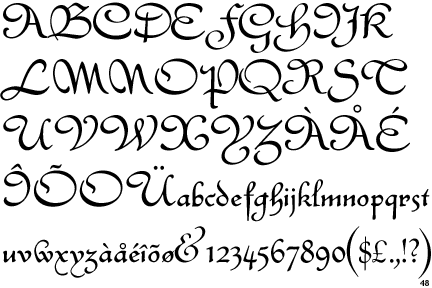 ABCDEFGHIJK
LMNOPQRSTC
UVWXYZÀÅÉ
ÎÕØÜabcdefghijklmnopqrst
uvwxyzàåéîõø&1234567890($£.,!?)
48